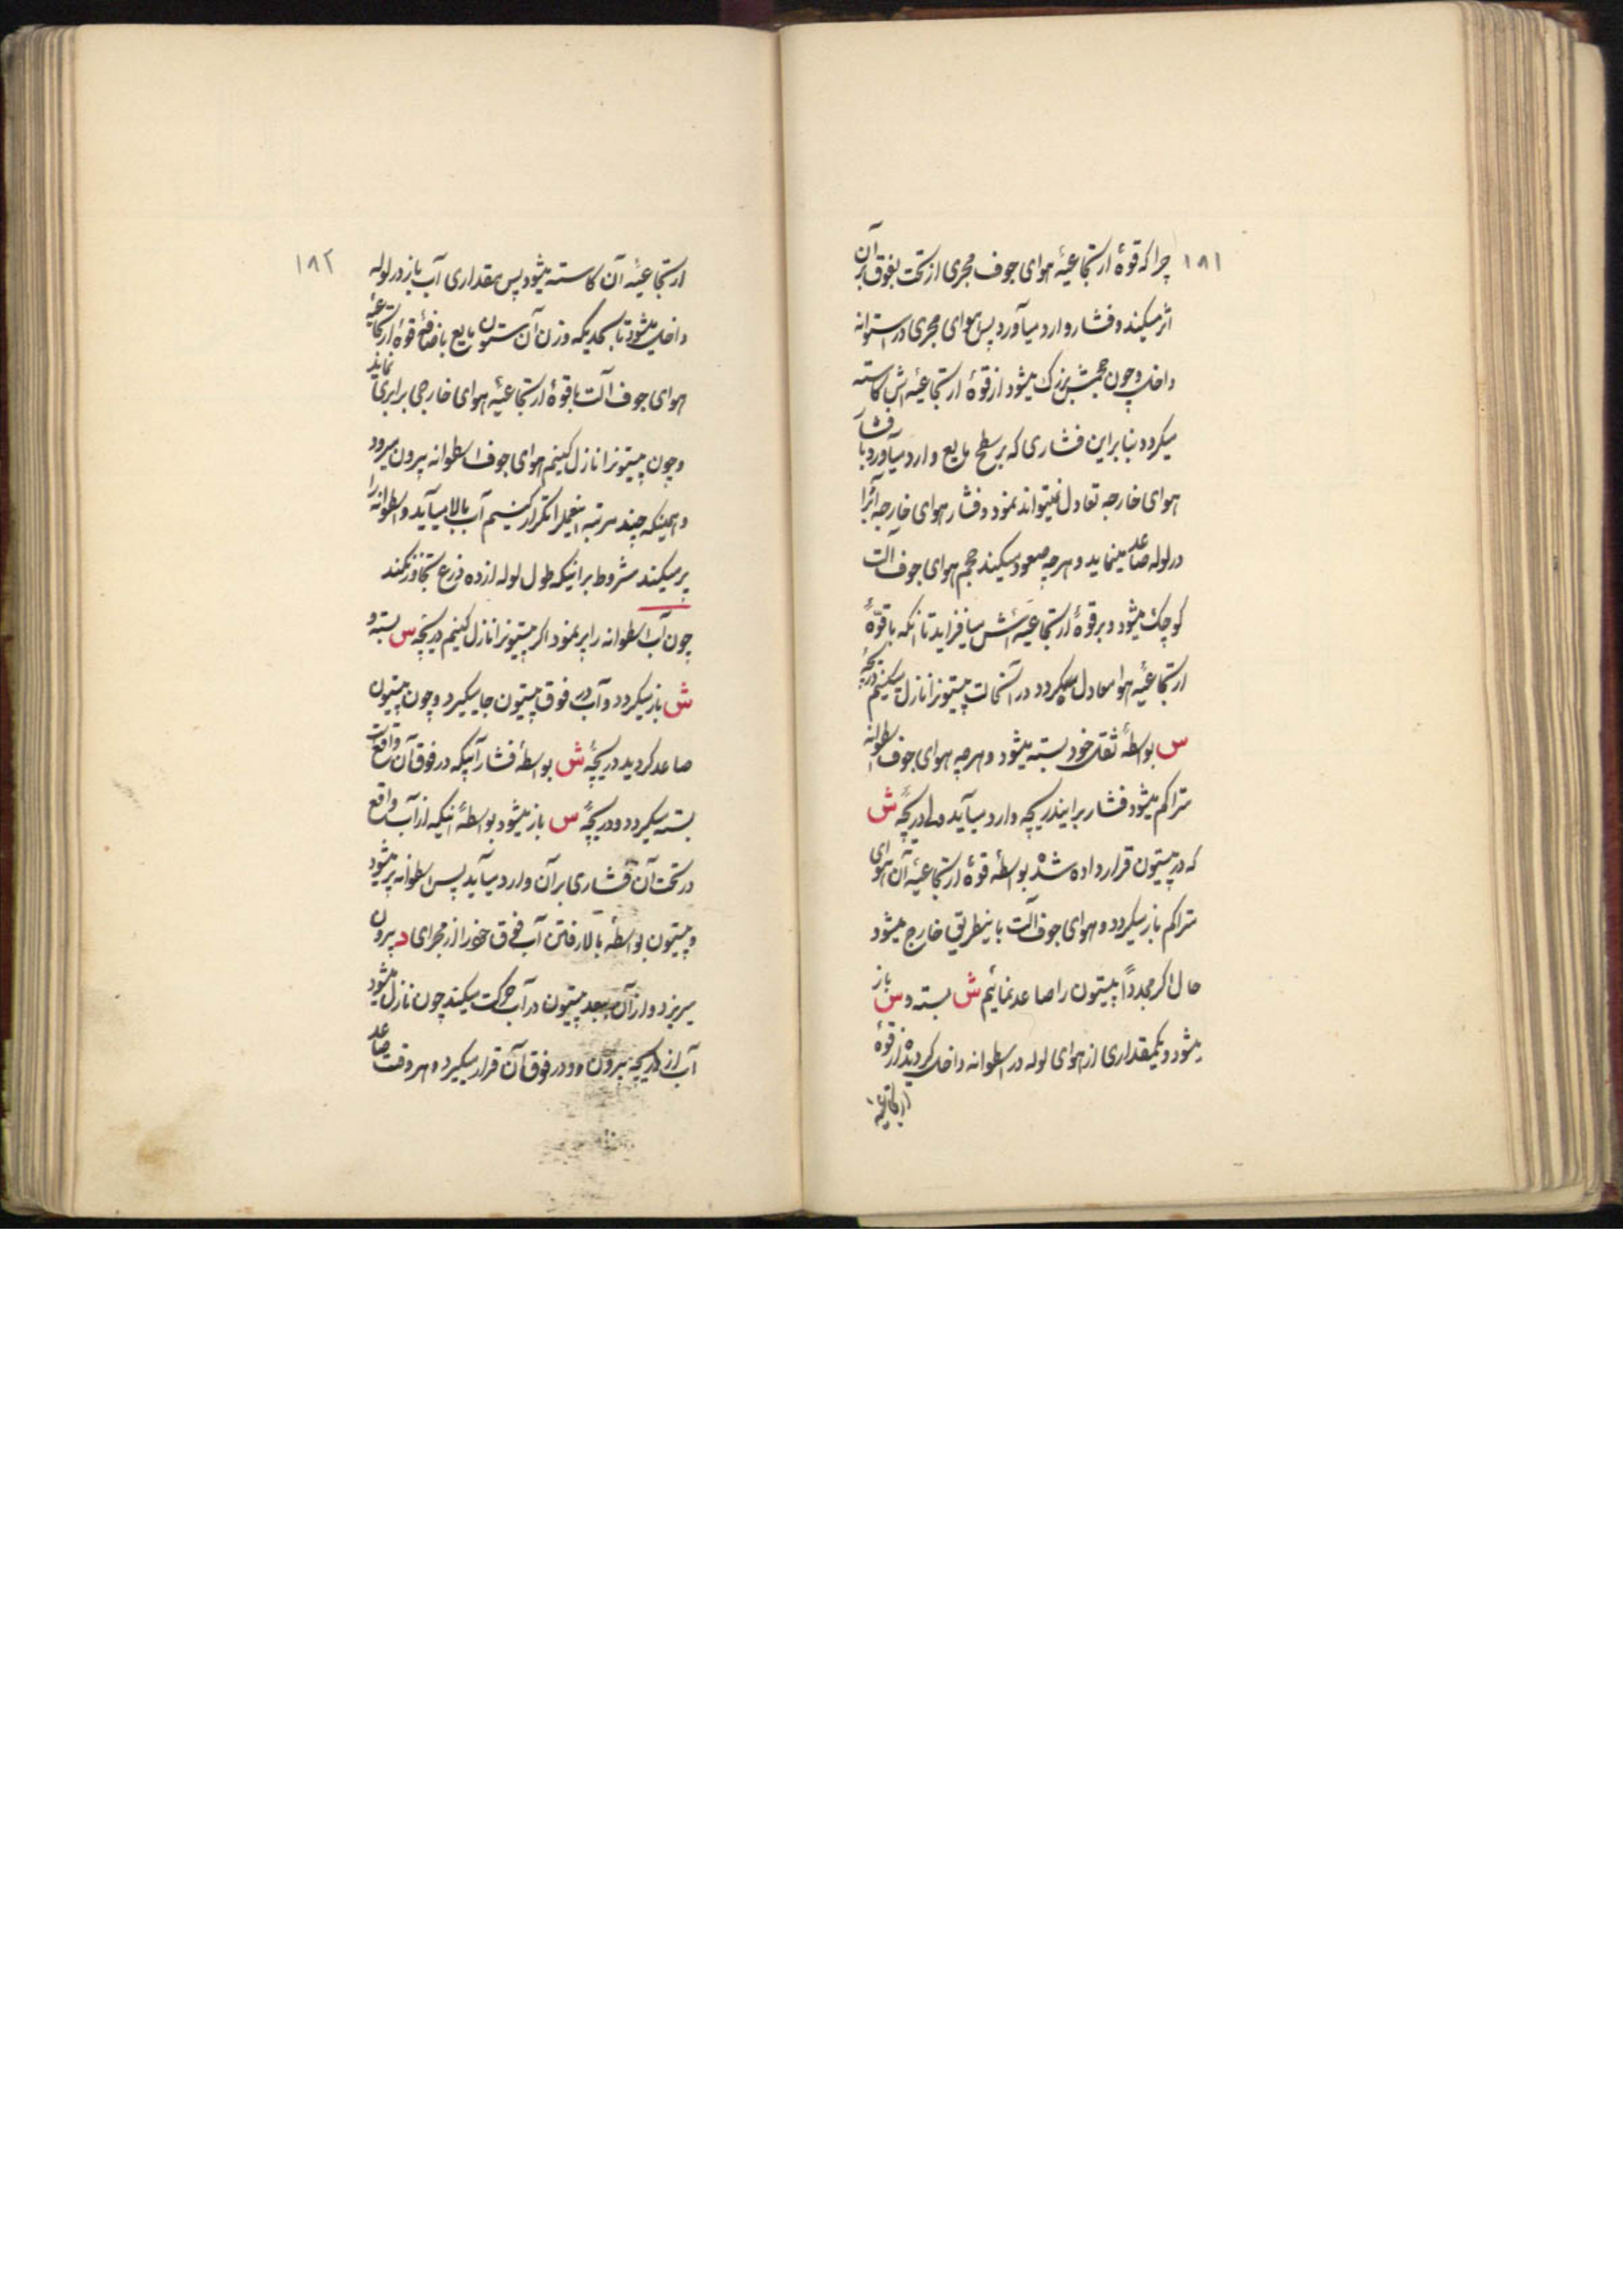 ۱۸۱
چرا که قوهٔ ارتجاعیهٔ هوای جوف مجری از تحت بفوق بر آن
اثر میکند و فشار وارد میآورد پس هوای مجری در استوانه
داخل و چون حجمش بزرک میشود از قوهٔ ارتجاعیهاش کاسته
میکردد بنابراین فشاری که بر سطح مایع وارد میآورد با فشار
هوای خارجه تعادل نمیتواند نمود و فشار هوای خارجه آنرا
در لوله صاعد مینماید و هرچه صعود میکند حجم هوای جوف آلت
کوچک میشود و بر قوهٔ ارتجاعیهاش میافزاید تا آنکه با قوهٔ
ارتجاعیهٔ هوا معادل میکردد در آنحالت پیستونرا نازل میکنیم دریچهٔ
س بواسطهٔ ثقل خود بسته میشود و هرچه هوای جوف اسطوانه
متراکم میشود فشار بر ایندریچه وارد میآید ولی دریچهٔ ش
که در پیستون قرار داده شده بواسطهٔ قوهٔ ارتجاعیهٔ آن هوای
متراکم باز میکردد و هوای جوف آلت باینطریق خارج میشود
حال اکر مجدداً پیستون را صاعد نمائیم ش بسته و س باز
میشود و یکمقداری از هوای لوله در اسطوانه داخل کردیده از قوهٔ
ارتجاعیه
۱۸۲
ارتجاعیهٔ آن کاسته میشود پس مقداری آب باز در لوله
داخل میشود تا بحدیکه وزن آن ستون مایع باضافهٔ قوهٔ ارتجاعیهٔ
هوای جوف آلت با قوهٔ ارتجاعیهٔ هوای خارجی برابری نماید
و چون پیستونرا نازل کنیم هوای جوف اسطوانه بیرون میرود
و همینکه چند مرتبه اینعملرا تکرار کنیم آب بالا میآید و اسطوانه را
پر میکند مشروط بر اینکه طول لوله از ده ذرع تجاوز نکند
چون آب اسطوانه را پر نمود اکر پیستونرا نازل کنیم دریچه س بسته و
ش باز میکردد و آب در فوق پیستون جا میکیرد و چون پیستون
صاعد کردید دریچهٔ ش بواسطهٔ فشار آبیکه در فوق آن واقعست
بسته میکردد و دریچهٔ س باز میشود بواسطهٔ اینکه از آب واقع
در تحت آن فشاری بر آن وارد میآید پس اسطوانه پر میشود
و پیستون بواسطهٔ بالا رفتن آب فوق خود را از مجرای د بیرون
میریزد و از آن ببعد پیستون در آب حرکت میکند چون نازل میشود
آب از دریچه بیرون و در فوق آن قرار میکیرد و هر وقت صاعد